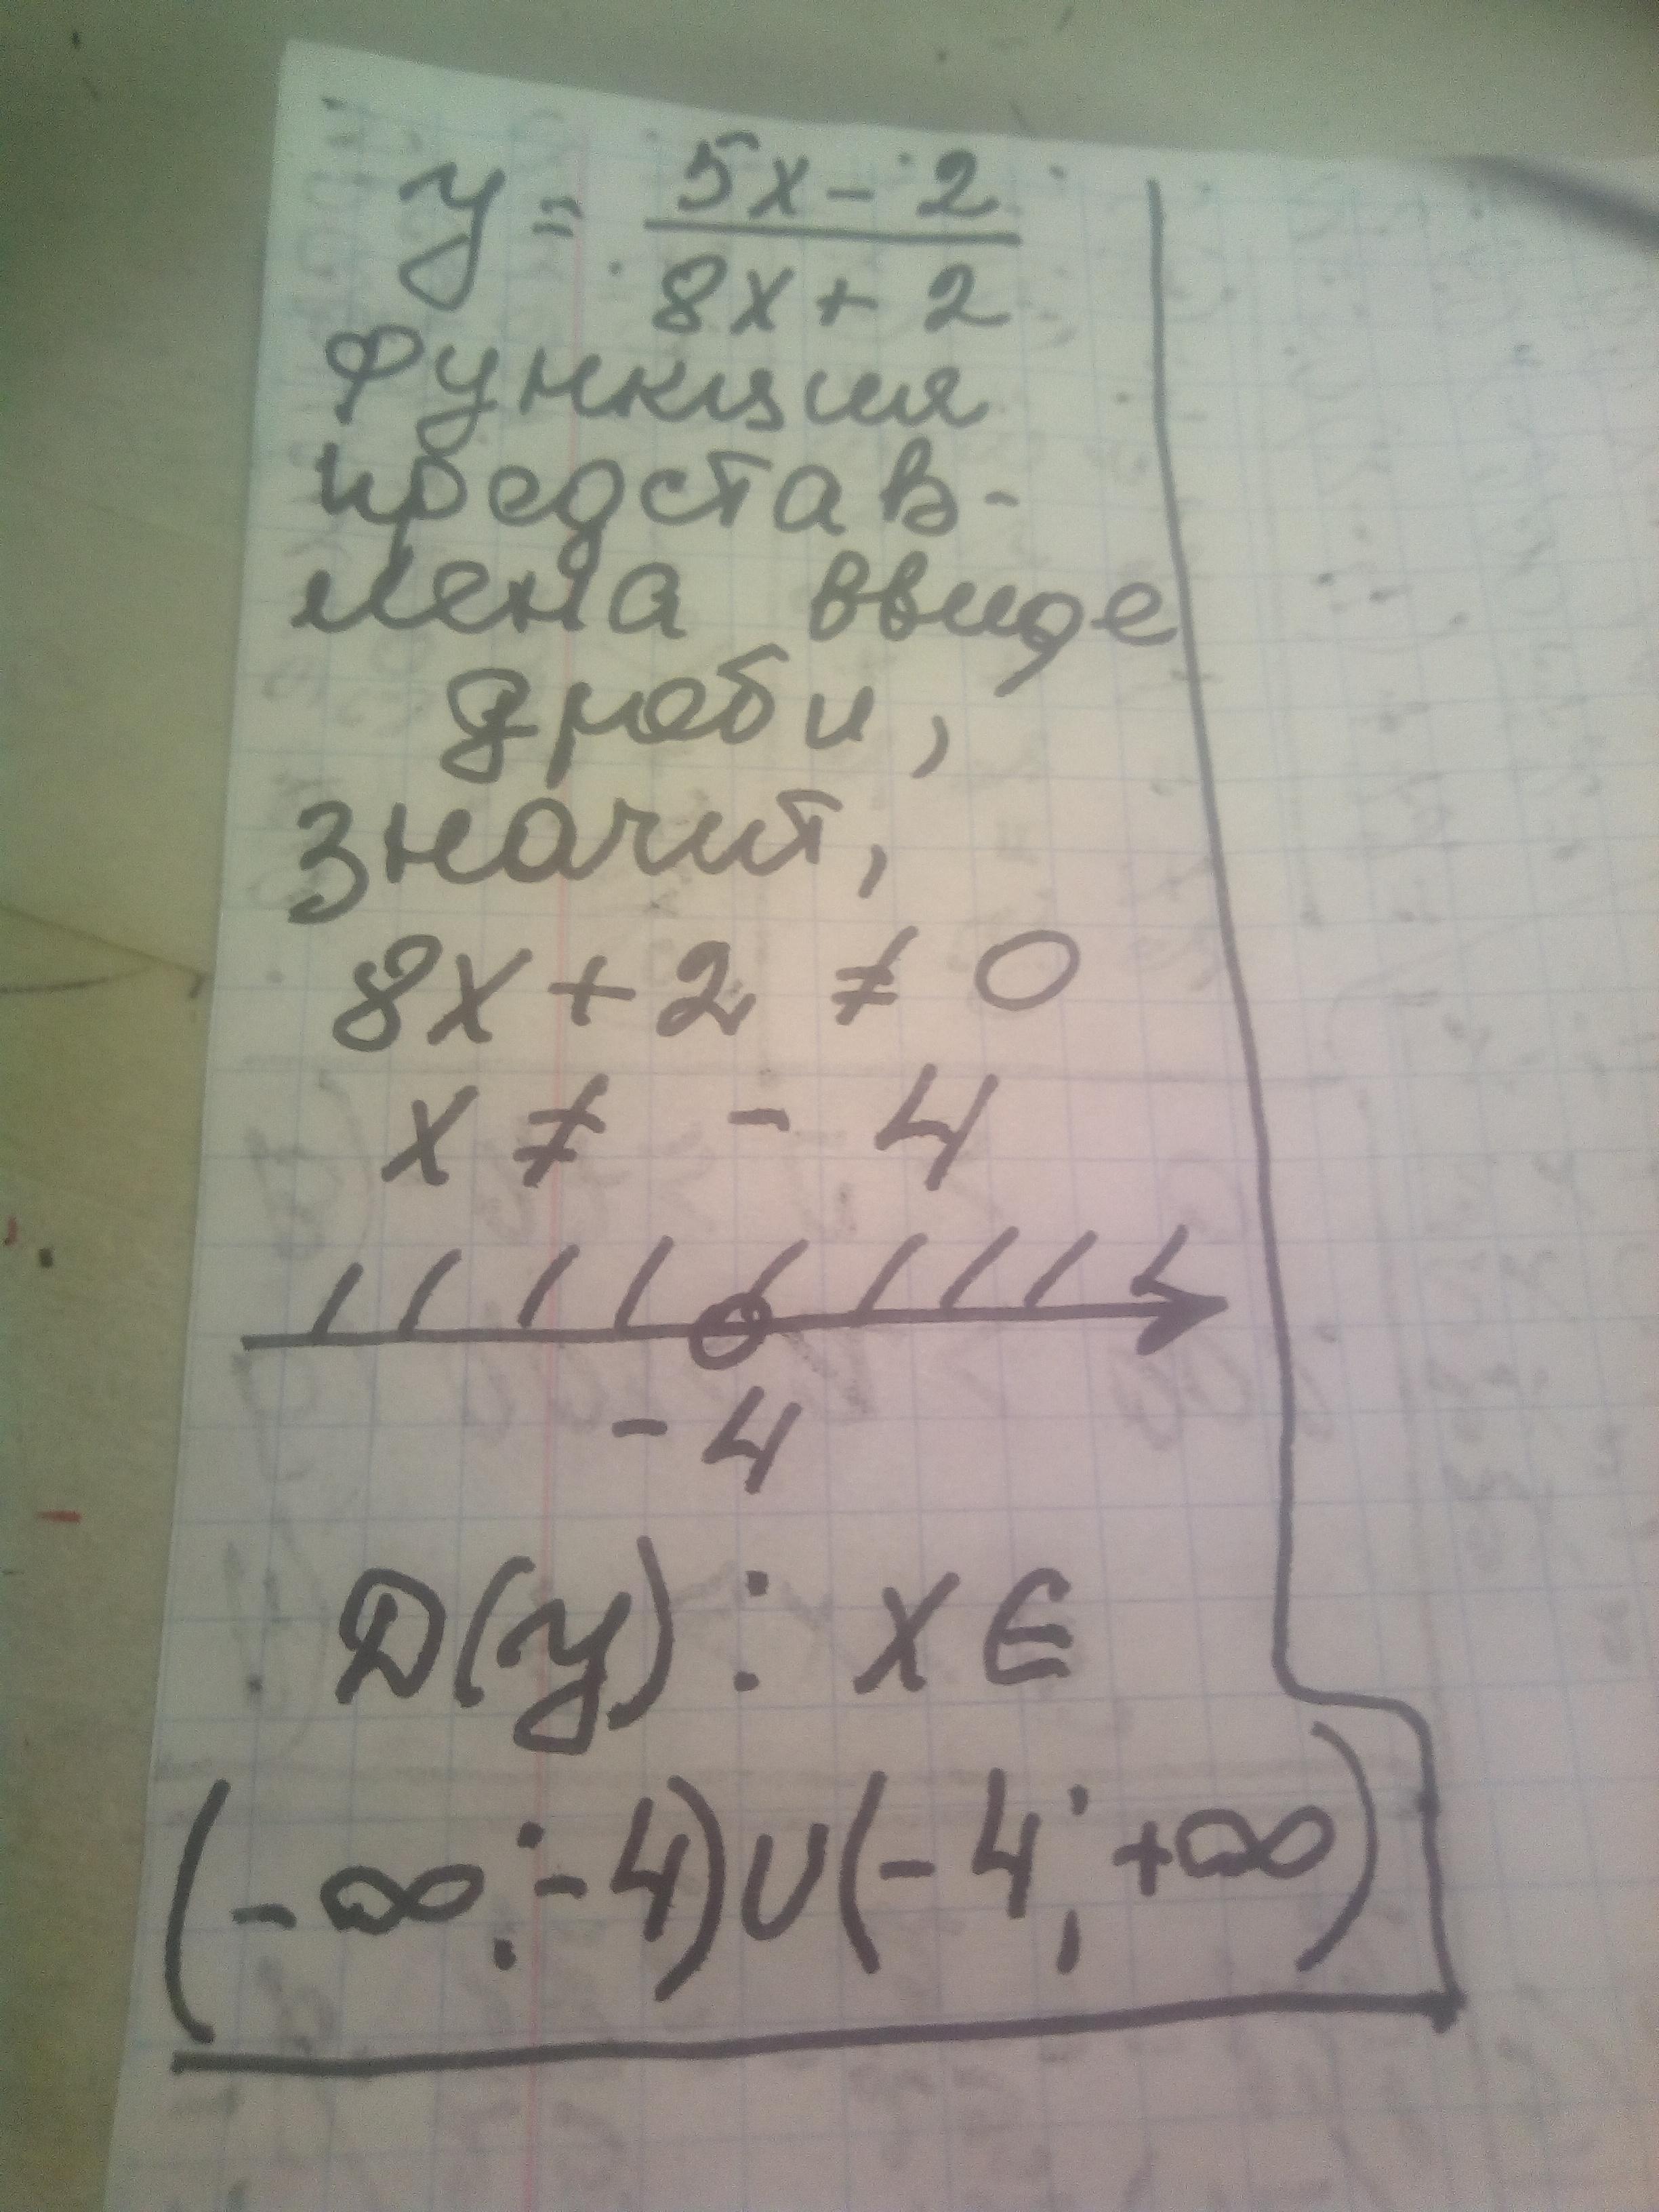 y = (5x - 2)/(8x + 2)
функция
представ-
лена ввиде
дроби,
значит,
8x + 2 ≠ 0
x ≠ - 4
- 4
D(y): x ∈
(-∞; -4)∪(-4; +∞)